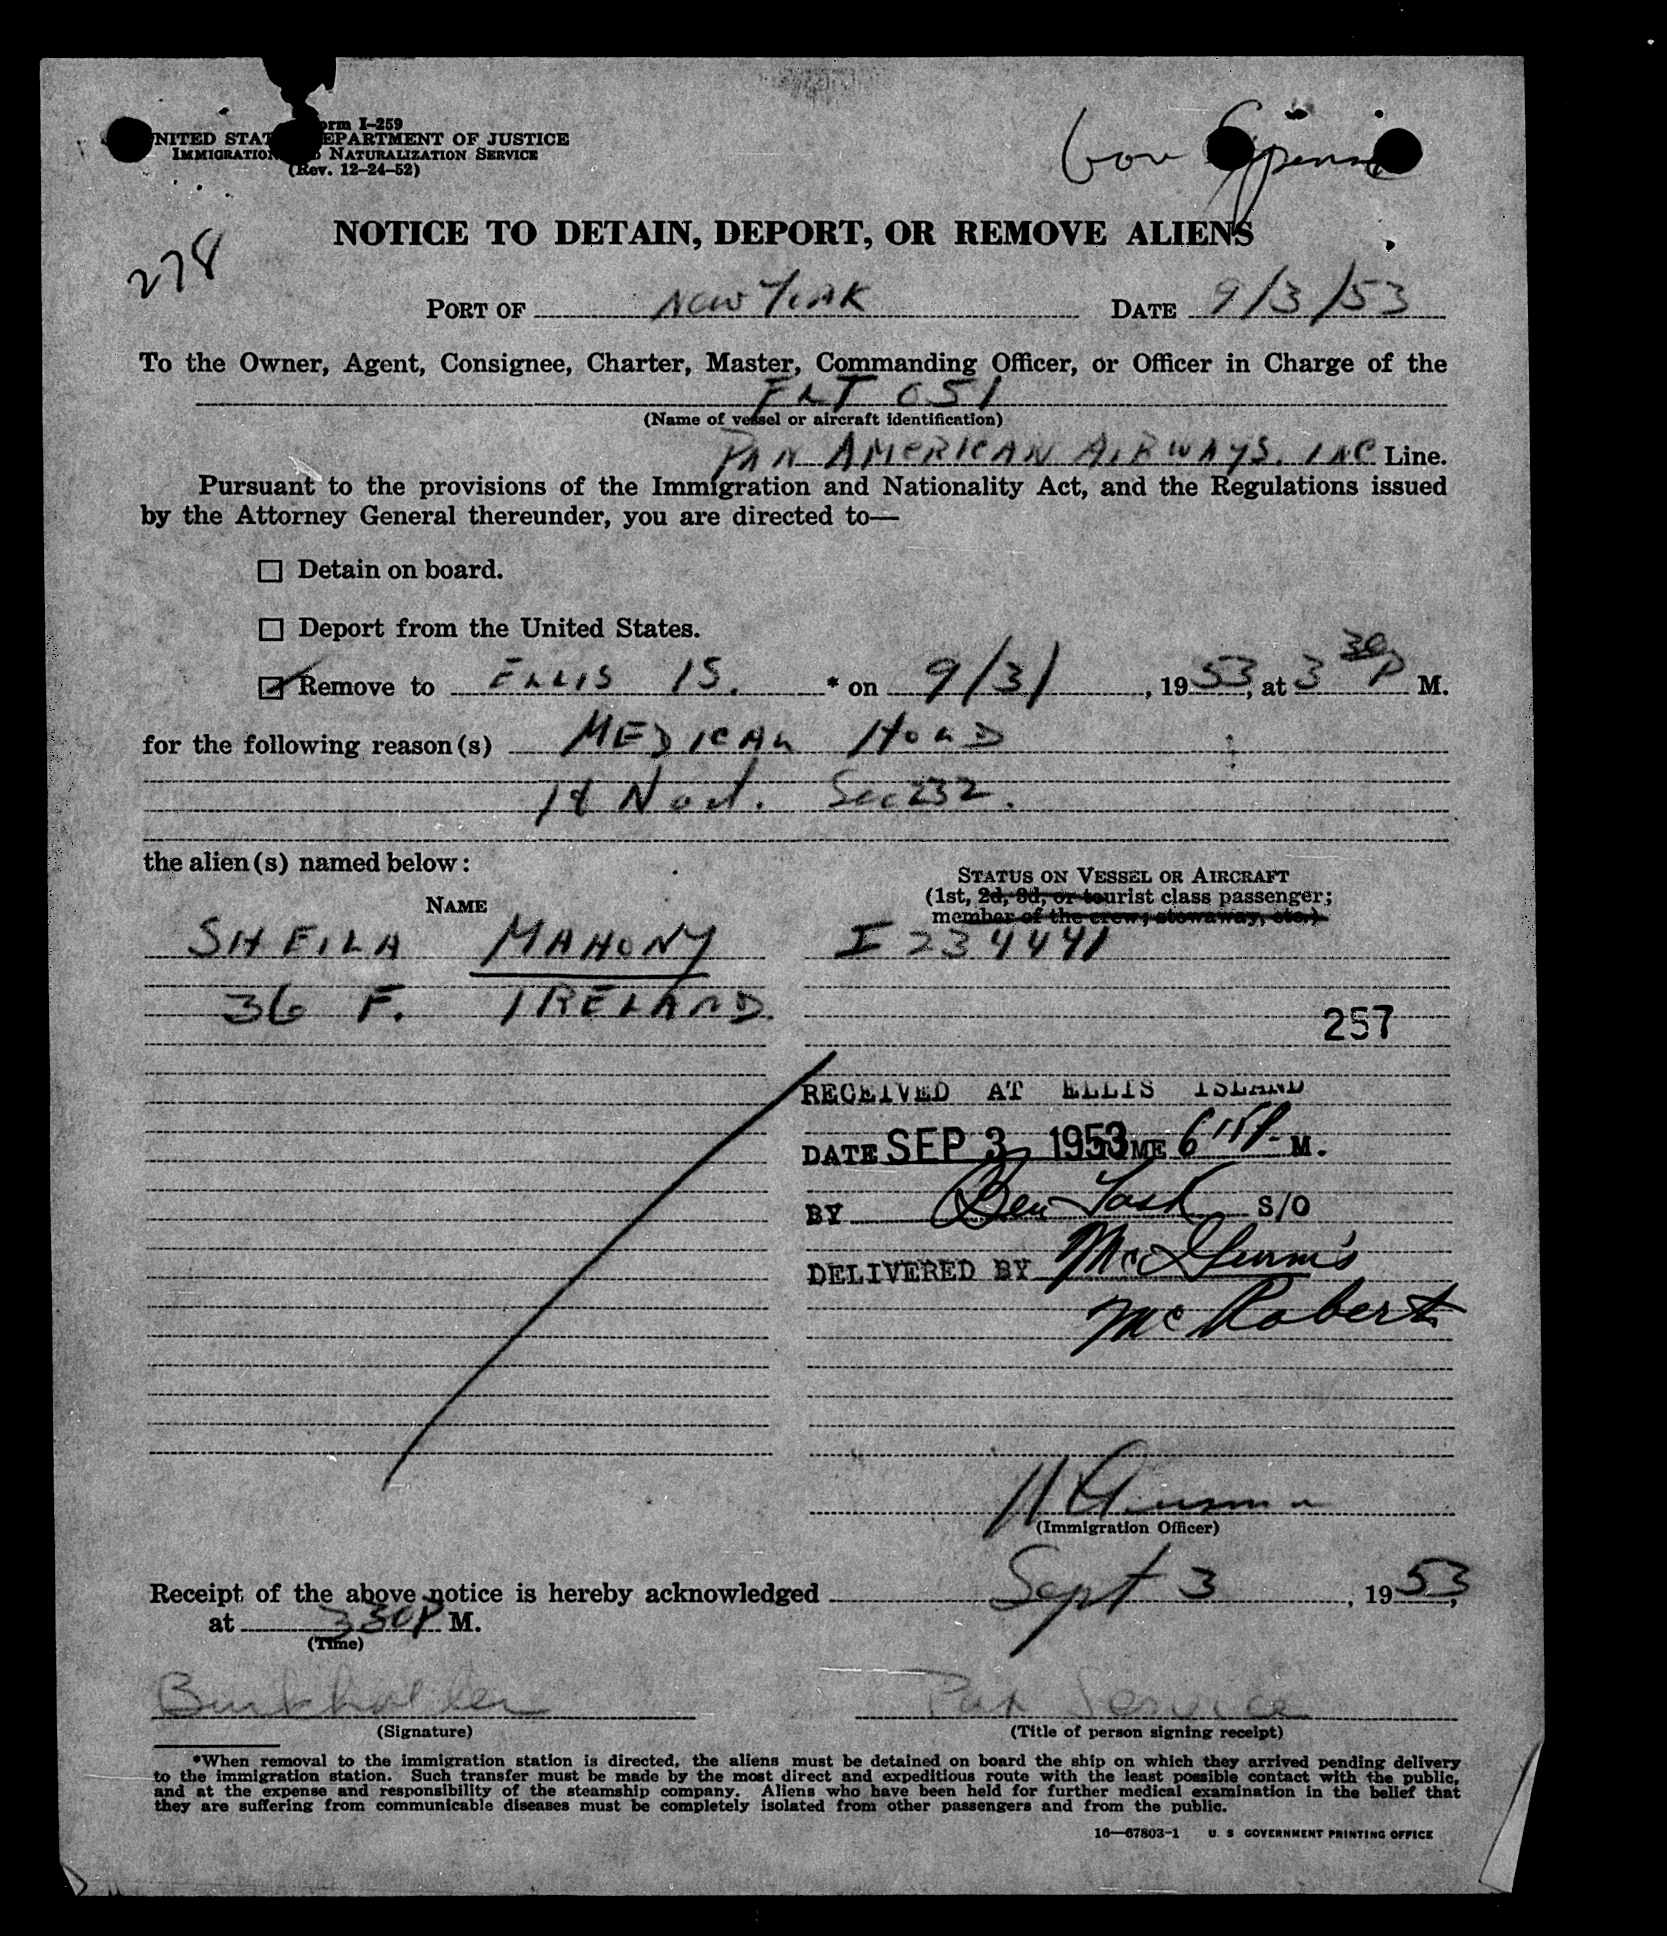 Form I-259
UNITED STATES DEPARTMENT OF JUSTICE
IMMIGRATION AND NATURALIZATION SERVICE
(Rev. 12-24-52)
Gov
278
NOTICE TO DETAIN, DEPORT, OR REMOVE ALIENS
PORT OF NEW YORK DATE 9/3/53
To the Owner, Agent, Consignee, Charter, Master, Commanding Officer, or Officer in Charge of the
FLT 051
(Name of vessel or aircraft identification)
PAN AMERICAN AIRWAYS. INC Line.
Pursuant to the provisions of the Immigration and Nationality Act, and the Regulations issued
by the Attorney General thereunder, you are directed to—
Detain on board.
Deport from the United States.
Remove to ELLIS IS. * on 9/3/, 1953, at 3 30 P M.
for the following reason(s) MEDICAL HOLD
Sec 232.
the alien(s) named below:
STATUS ON VESSEL OR AIRCRAFT
(1st, 2d, 3d, or tourist class passenger;
member of the crew; stowaway, etc.)
NAME
SHEILA MAHONY I 234441
36 F. IRELAND.
257
RECEIVED AT ELLIS ISLAND
DATE SEP 3 1953 TIME 6 15 P. M.
BY Ben S/O
DELIVERED BY McGinnis
McRoberts
H
(Immigration Officer)
Receipt of the above notice is hereby acknowledged Sept 3, 1953,
at 330P M.
(Time)
Burkholder Pax Service
(Signature) (Title of person signing receipt)
*When removal to the immigration station is directed, the aliens must be detained on board the ship on which they arrived pending delivery
to the immigration station. Such transfer must be made by the most direct and expeditious route with the least possible contact with the public,
and at the expense and responsibility of the steamship company. Aliens who have been held for further medical examination in the belief that
they are suffering from communicable diseases must be completely isolated from other passengers and from the public.
16—67803-1 U. S GOVERNMENT PRINTING OFFICE